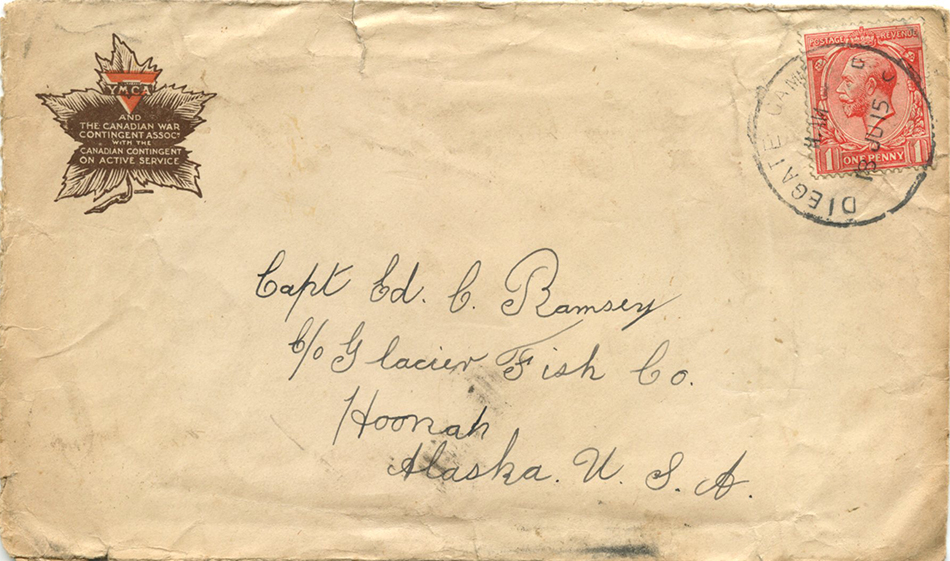 YMCA
AND
THE CANADIAN WAR
CONTINGENT ASSOCN
WITH THE
CANADIAN CONTINGENT
ON ACTIVE SERVICE
POSTAGE REVENUE
1 ONE PENNY 1
DIEGATE CAM
15
Capt Ed. C. Ramsey
C/o Glacier Fish Co.
Hoonah
Alaska. U. S. A.